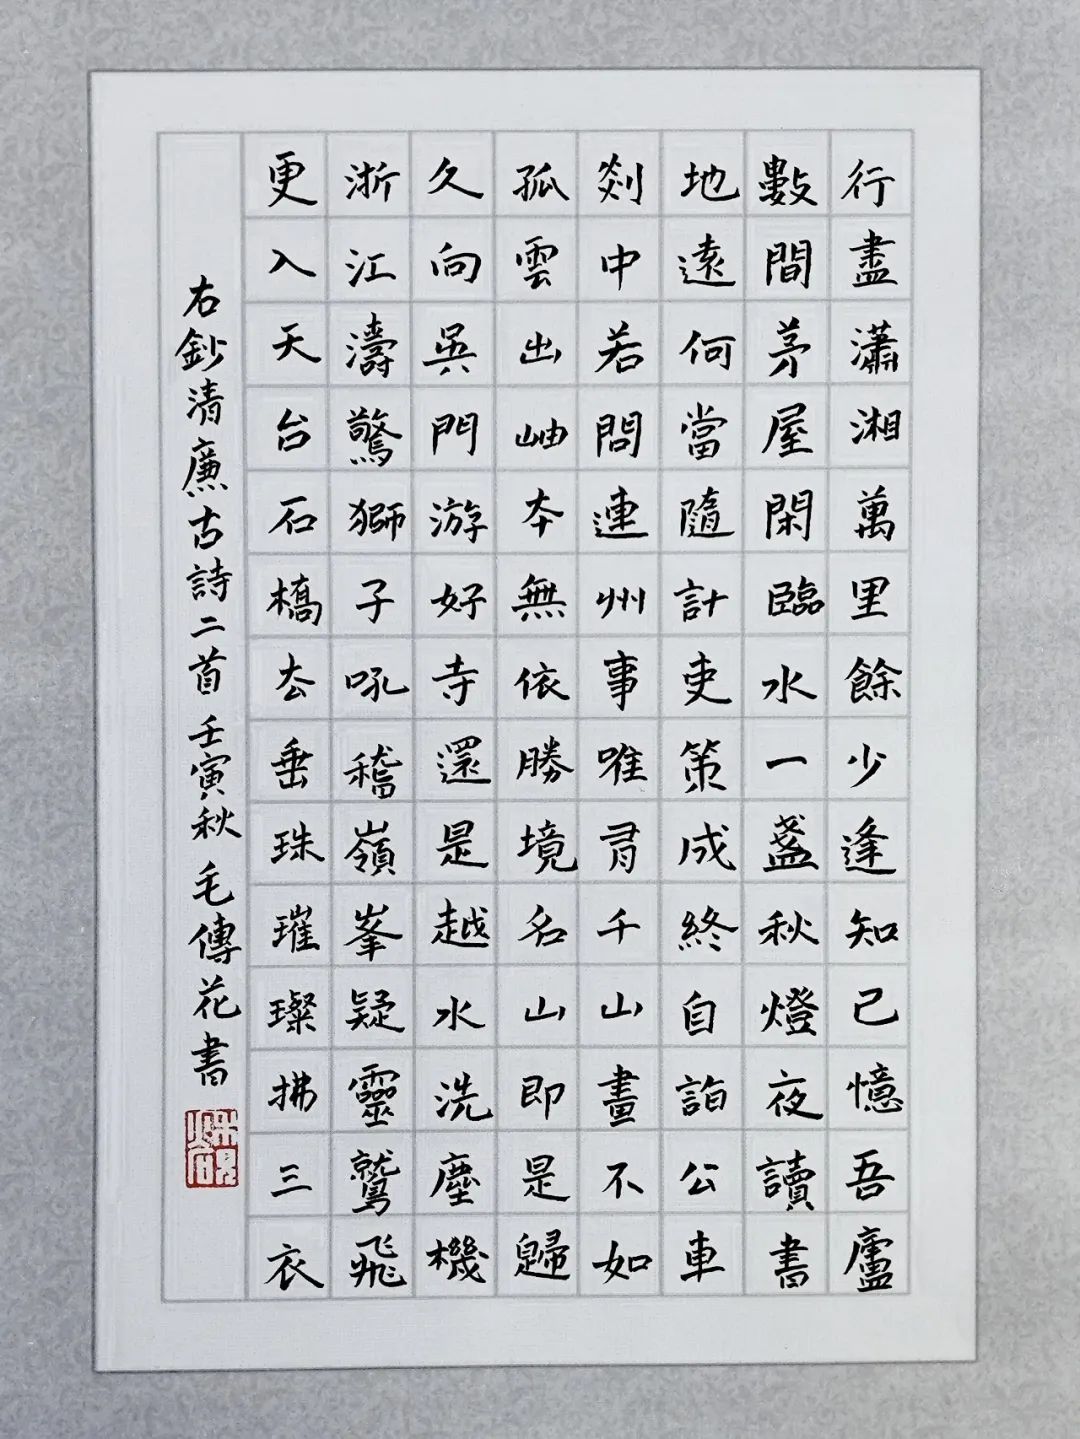 行盡瀟湘萬里餘少逢知己憶吾廬
數間茅屋閑臨水一盞秋燈夜讀書
地遠何當隨計吏策成終自詣公車
剡中若問連州事唯有千山畫不如
孤雲出岫本無依勝境名山即是歸
久向吳門游好寺還是越水洗塵機
浙江濤驚獅子吼稽嶺峯疑靈鷲飛
更入天台石橋去垂珠璀璨拂三衣
右鈔清廉古詩二首壬寅秋毛傳花書